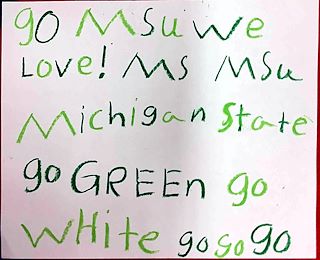 go MSu We
Love! MS MSu
Michigan State
go GREEn go
WHite go go go